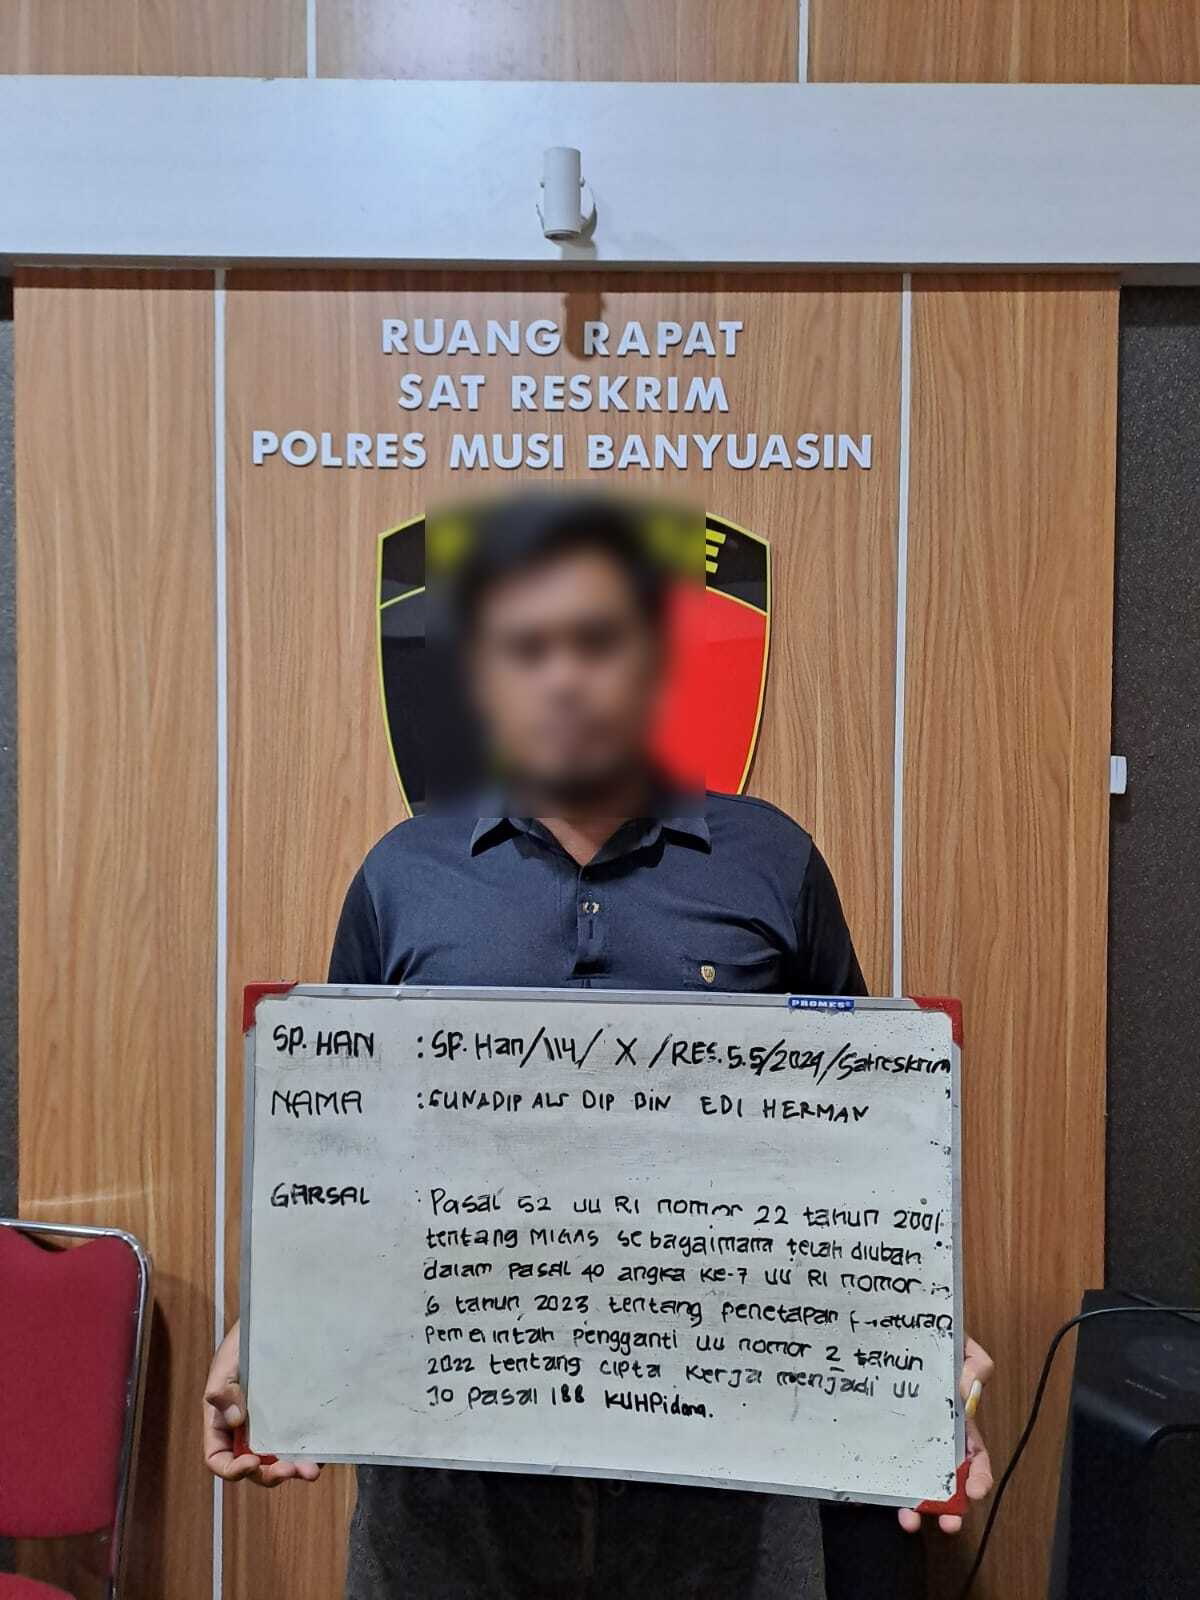 RUANG RAPAT
SAT RESKRIM
POLRES MUSI BANYUASIN
E
PROMES
SP. HAN : SP. Han/114/ X /RES.5.5/2024/Satreskrim
NAMA : GUNADIP ALS DIP BIN EDI HERMAN
GARSAL : Pasal 52 UU RI nomor 22 tahun 2001
tentang MIGAS sebagaimana telah diubah
dalam pasal 40 angka ke-7 UU RI nomor
6 tahun 2023 tentang penetapan
Pemerintah pengganti UU nomor 2 tahun
2022 tentang cipta kerja menjadi UU
JO pasal 188 KUHPidana.